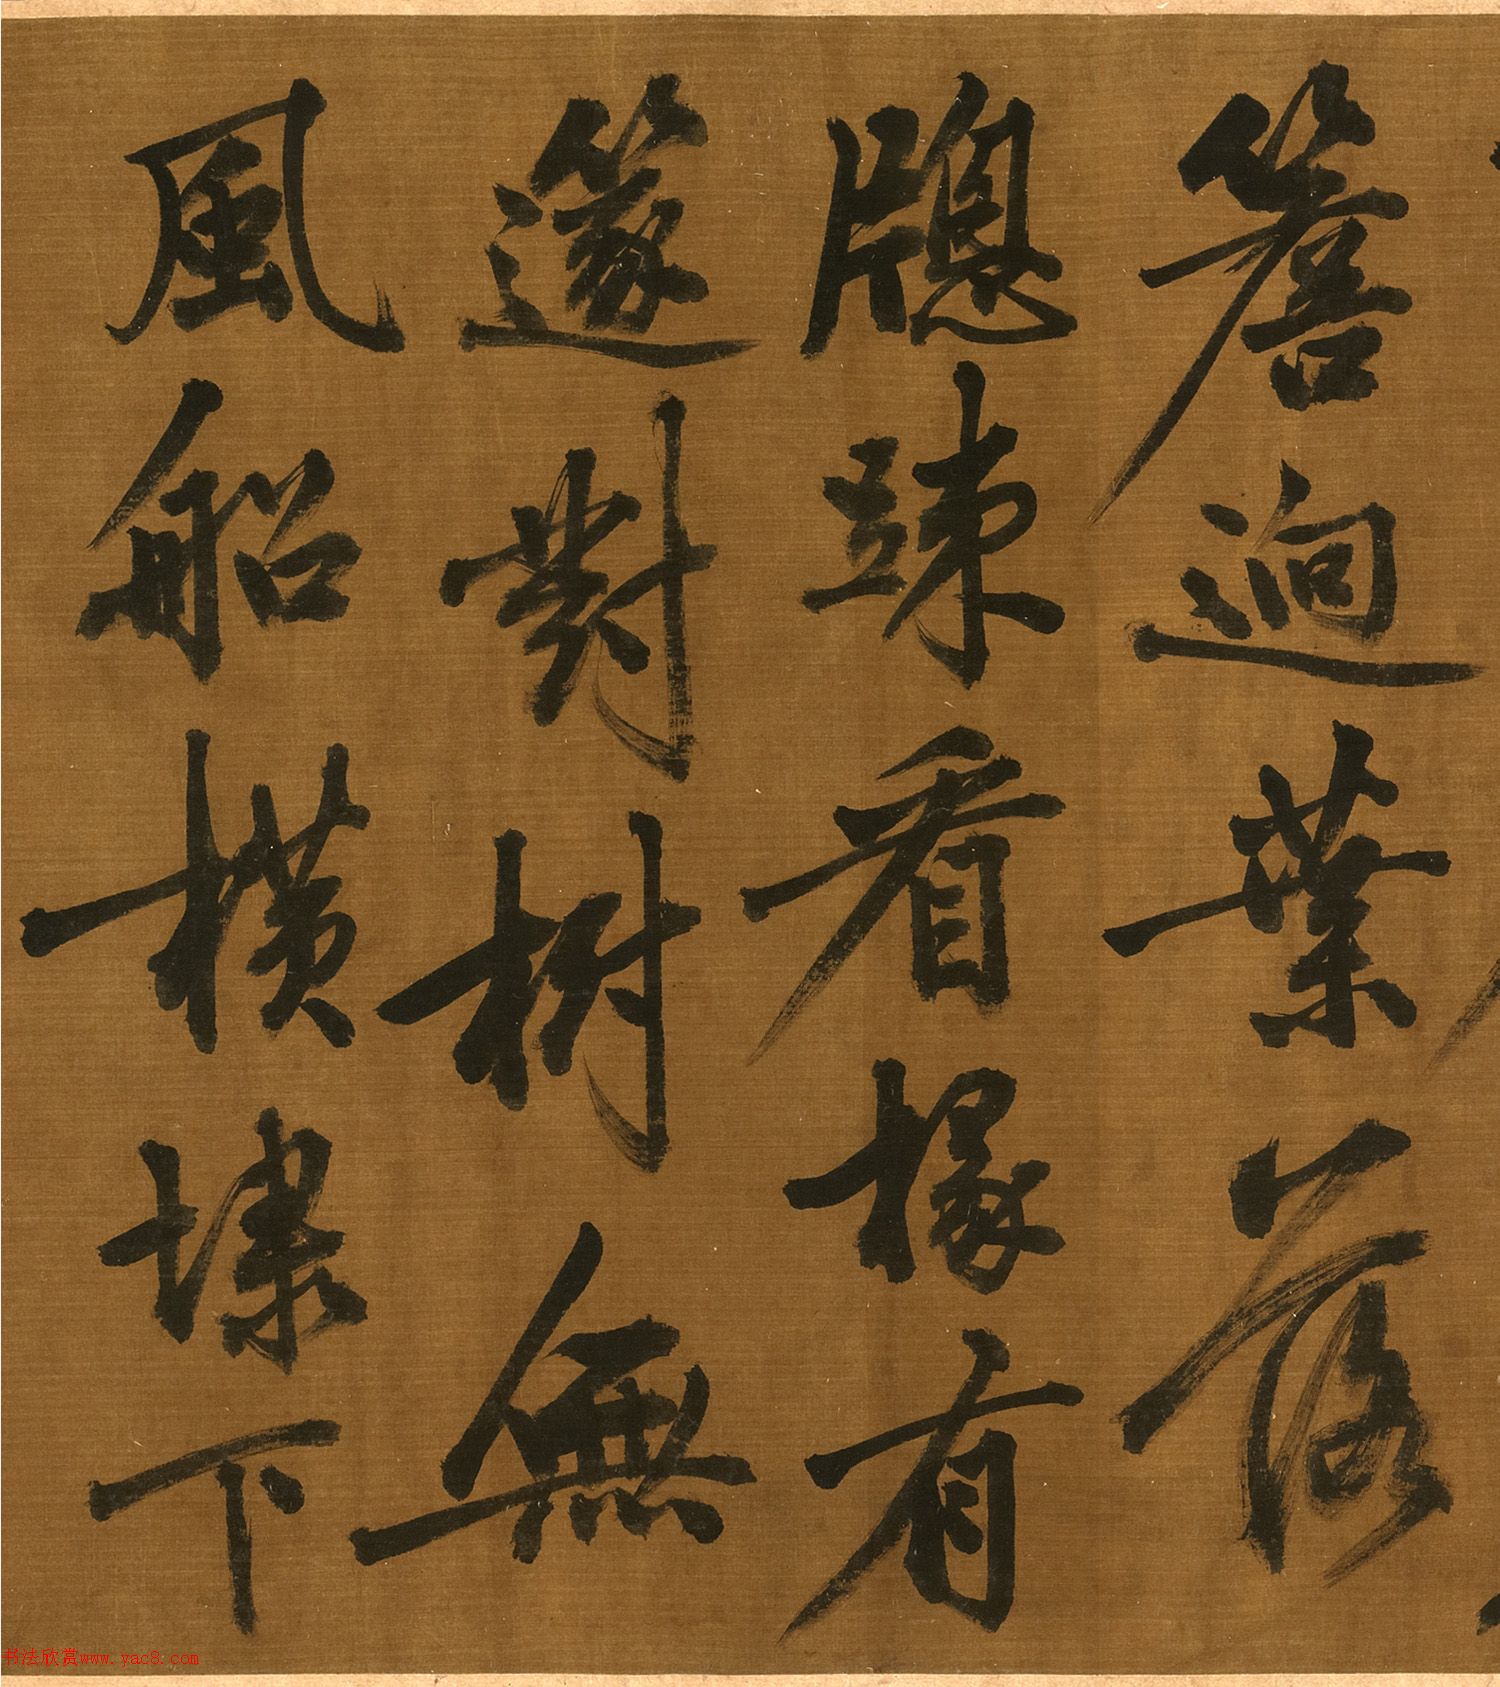 簷迥葉落
牕踈看椽有
邃對樹無
風船橫壕下
书法欣赏www.yac8.com